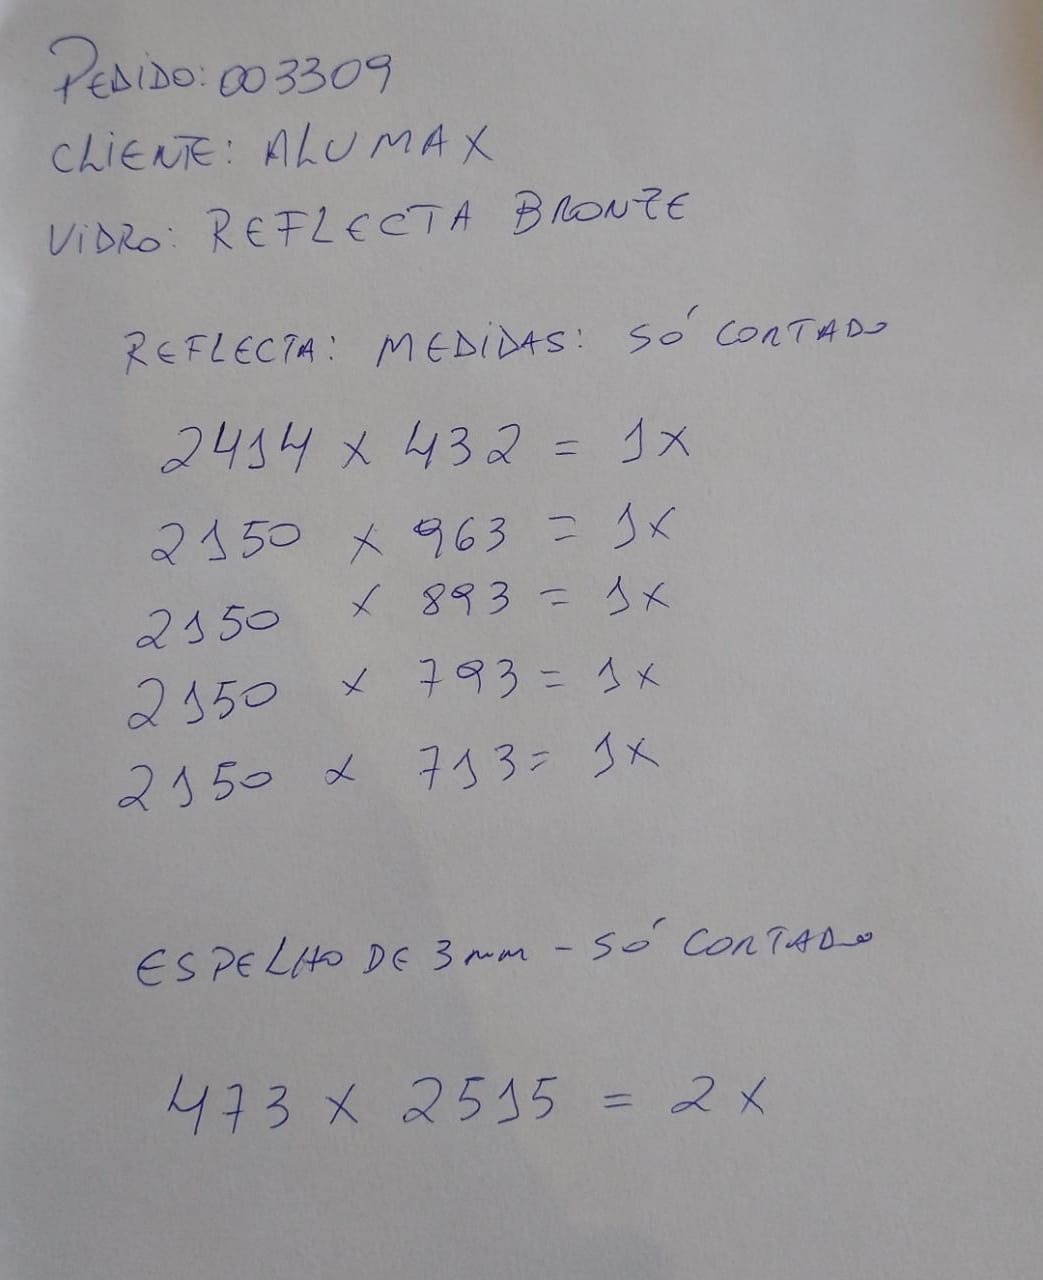 PEDIDO: 003309
CLIENTE: ALUMAX
VIDRO: REFLECTA BRONZE
REFLECTA: MEDIDAS: SÓ CORTADO
2414 x 432 = 1x
2150 x 963 = 1x
2150 x 893 = 1x
2150 x 793 = 1x
2150 x 713 = 1x
ESPELHO DE 3mm - SÓ CORTADO
473 x 2515 = 2x